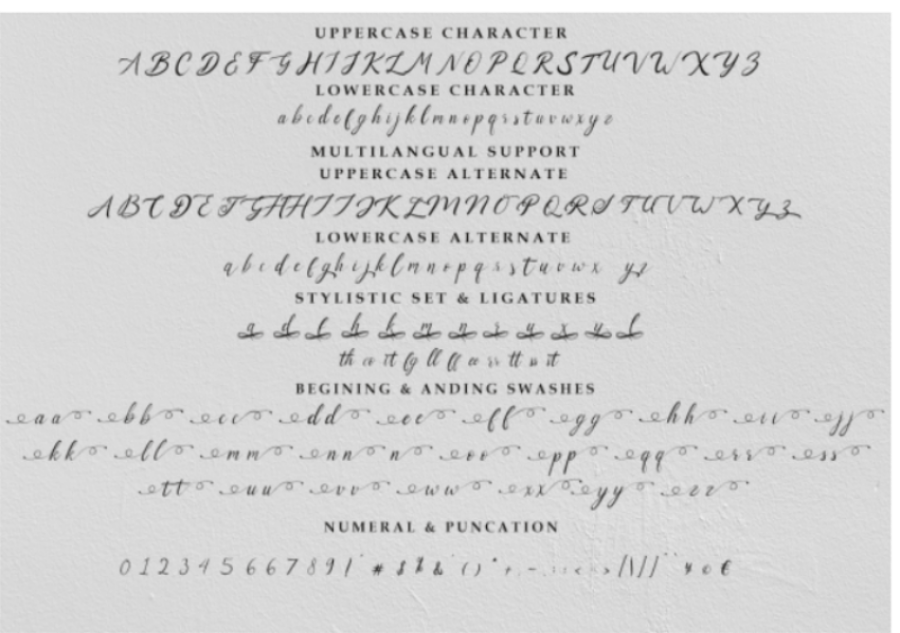 UPPERCASE CHARACTER
A B C D E F G H I J K L M N O P Q R S T U V W X Y Z
LOWERCASE CHARACTER
a b c d e f g h i j k l m n o p q r s t u v w x y z
MULTILANGUAL SUPPORT
UPPERCASE ALTERNATE
LOWERCASE ALTERNATE
a b c d e f g h i j k l m n o p q r s s t u v w x y z
STYLISTIC SET & LIGATURES
a d f h k m n r u x y l
BEGINING & ANDING SWASHES
aa bb cc dd ee ff gg hh ii jj
kk ll mm nn n oo pp qq rr ss
tt uu vv ww xx yy zz
NUMERAL & PUNCATION